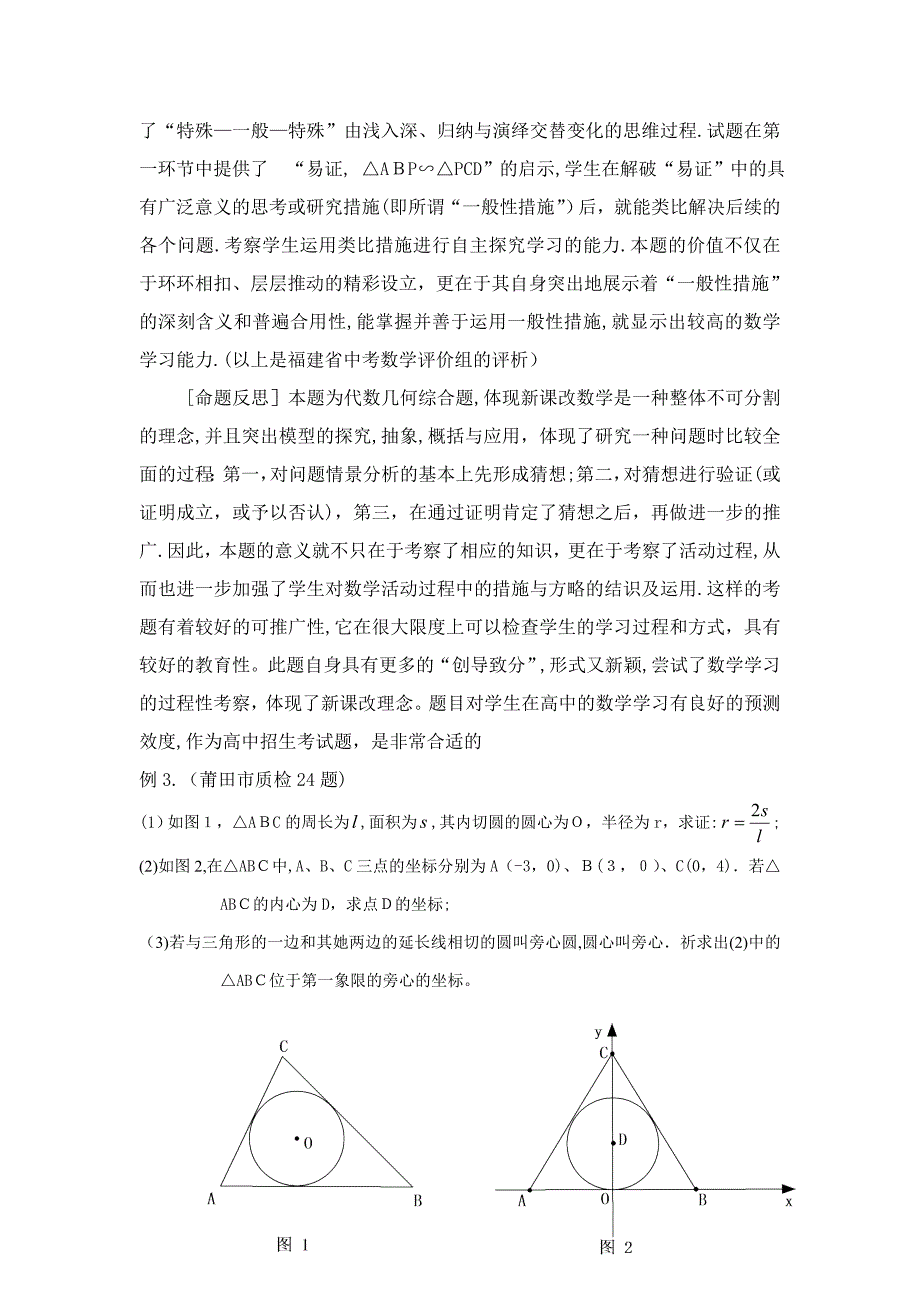 了“特殊—一般—特殊”由浅入深、归纳与演绎交替变化的思维过程.试题在第
一环节中提供了 “易证, △ABP∽△PCD”的启示,学生在解破“易证”中的具
有广泛意义的思考或研究措施(即所谓“一般性措施”）后，就能类比解决后续的
各个问题.考察学生运用类比措施进行自主探究学习的能力.本题的价值不仅在
于环环相扣、层层推动的精彩设立，更在于其自身突出地展示着“一般性措施”
的深刻含义和普遍合用性,能掌握并善于运用一般性措施,就显示出较高的数学
学习能力.(以上是福建省中考数学评价组的评析）
[命题反思］本题为代数几何综合题,体现新课改数学是一种整体不可分割
的理念,并且突出模型的探究,抽象,概括与应用，体现了研究一种问题时比较全
面的过程:第一,对问题情景分析的基本上先形成猜想;第二,对猜想进行验证(或
证明成立，或予以否认)，第三，在通过证明肯定了猜想之后，再做进一步的推
广.因此，本题的意义就不只在于考察了相应的知识，更在于考察了活动过程,从
而也进一步加强了学生对数学活动过程中的措施与方略的结识及运用.这样的考
题有着较好的可推广性,它在很大限度上可以检查学生的学习过程和方式，具有
较好的教育性。此题自身具有更多的“创导致分”,形式又新颖,尝试了数学学习
的过程性考察，体现了新课改理念。题目对学生在高中的数学学习有良好的预测
效度,作为高中招生考试题，是非常合适的
例3.（莆田市质检24题)
(1）如图１，△ABC的周长为l,面积为s,其内切圆的圆心为O，半径为r，求证:r=2s/l;
(2)如图2,在△ABC中,A、B、C三点的坐标分别为A（-3，0)、B(３，０)、C(0，4)．若△
ABC的内心为D，求点D的坐标;
（3)若与三角形的一边和其她两边的延长线相切的圆叫旁心圆,圆心叫旁心．祈求出(2)中的
△ABC位于第一象限的旁心的坐标。
C
O
A
B
图 1
y
C
D
A
O
B
x
图 2